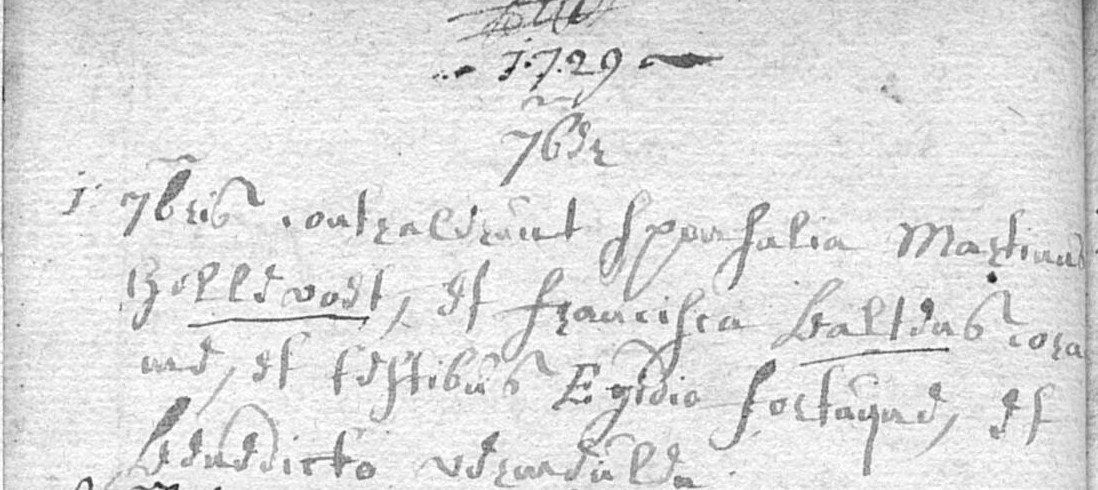 1729
7br
1 7bris contraxerunt sponsalia Martinus
et Francisca Baltens cora
me, et testibus Egidio fortuyne, et
Benedicto vermeulen